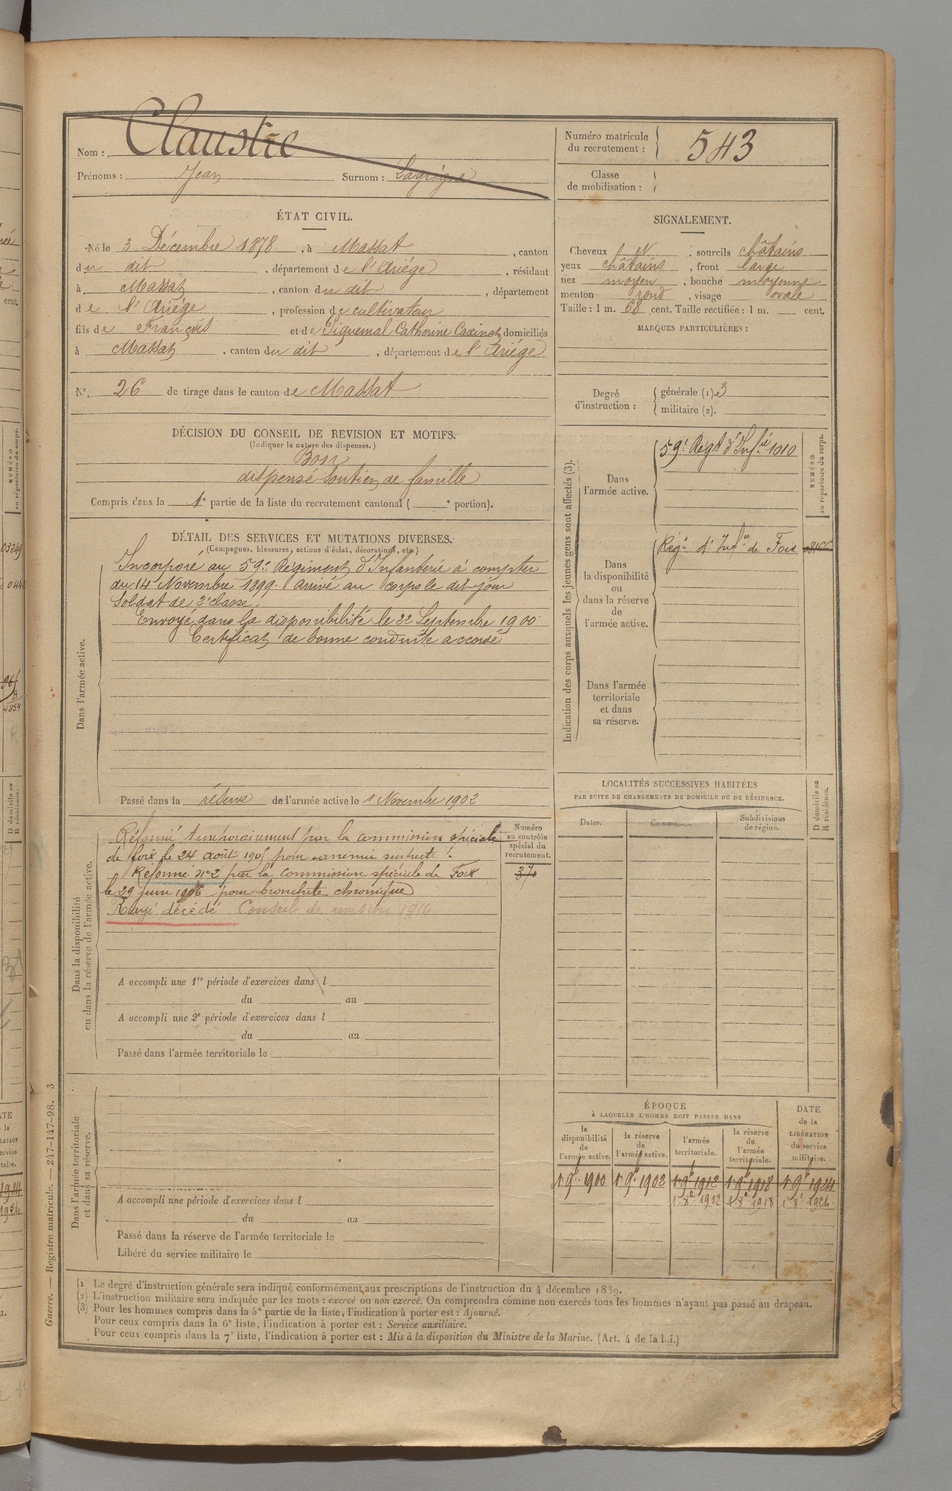 Nom : Claustre
Prénoms : Jean Surnom :
Numéro matricule du recrutement : 543
Classe de mobilisation :
ÉTAT CIVIL.
Né le 3 Décembre 1878, à Massat, canton
du dit, département de l'Ariége, résidant
à Massat, canton du dit, département
de l'Ariége, profession de cultivateur
fils de François et de Piquemal Catherine domiciliés
à Massat, canton du dit, département de l'Ariége
N° 26 de tirage dans le canton de Massat
SIGNALEMENT.
Cheveux sourcils châtains
yeux châtains, front large
nez moyen, bouche moyenne
menton rond, visage ovale
Taille : 1 m. 68 cent. Taille rectifiée : 1 m. cent.
MARQUES PARTICULIÈRES :
Degré d'instruction : générale (1) 3
militaire (2).
DÉCISION DU CONSEIL DE REVISION ET MOTIFS.
(Indiquer la nature des dispenses.)
Bon
dispensé Soutien de famille
Compris dans la 1e partie de la liste du recrutement cantonal ( e portion).
DÉTAIL DES SERVICES ET MUTATIONS DIVERSES.
(Campagnes, blessures, actions d'éclat, décorations, etc.)
Dans l'armée active.
Incorporé au 59e Régiment d'Infanterie à compter
du 14 Novembre 1899. Arrivé au corps le dit jour
Soldat de 2e classe.
Envoyé dans la disponibilité le 22 Septembre 1900
Certificat de bonne conduite accordé
Passé dans la réserve de l'armée active le 1 Novembre 1902
Indication des corps auxquels les jeunes gens sont affectés (3).
NUMÉRO au répertoire du corps.
Dans l'armée active.
59e Régt d'Infie 1010
Dans la disponibilité ou dans la réserve de l'armée active.
Régt d'Infie de Foix
Dans l'armée territoriale et dans sa réserve.
Dans la disponibilité ou dans la réserve de l'armée active.
Numéro au contrôle spécial du recrutement.
Réformé temporairement par la commission spéciale
de Foix le 24 août pour anémie
Réformé n°2 par la commission spéciale de Foix
le 29 juin 1906 pour bronchite chronique
Rayé décédé Conseil de
A accompli une 1re période d'exercices dans l
du au
A accompli une 2e période d'exercices dans l
du au
Passé dans l'armée territoriale le
LOCALITÉS SUCCESSIVES HABITÉES
PAR SUITE DE CHANGEMENTS DE DOMICILE OU DE RÉSIDENCE.
Dates. Communes. Subdivisions de région. D domicile ou R résidence.
Dans l'armée territoriale et dans sa réserve.
A accompli une période d'exercices dans l
du au
Passé dans la réserve de l'armée territoriale le
Libéré du service militaire le
ÉPOQUE
À LAQUELLE L'HOMME DOIT PASSER DANS
la disponibilité de l'armée active.
la réserve de l'armée active.
l'armée territoriale.
la réserve de l'armée territoriale.
DATE de la LIBÉRATION du service militaire.
1 9e 1900 1 9e 1902 1 9e 1912 1 9e 1918 1 9e 1924
(1) Le degré d'instruction générale sera indiqué conformément aux prescriptions de l'instruction du 4 décembre 1889.
(2) L'instruction militaire sera indiquée par les mots : exercé ou non exercé. On comprendra comme non exercés tous les hommes n'ayant pas passé au drapeau.
(3) Pour les hommes compris dans la 5e partie de la liste, l'indication à porter est : Ajourné.
Pour ceux compris dans la 6e liste, l'indication à porter est : Service auxiliaire.
Pour ceux compris dans la 7e liste, l'indication à porter est : Mis à la disposition du Ministre de la Marine. (Art. 4 de la loi.)
Guerre. — Registre matricule. — 247-147-98. 3